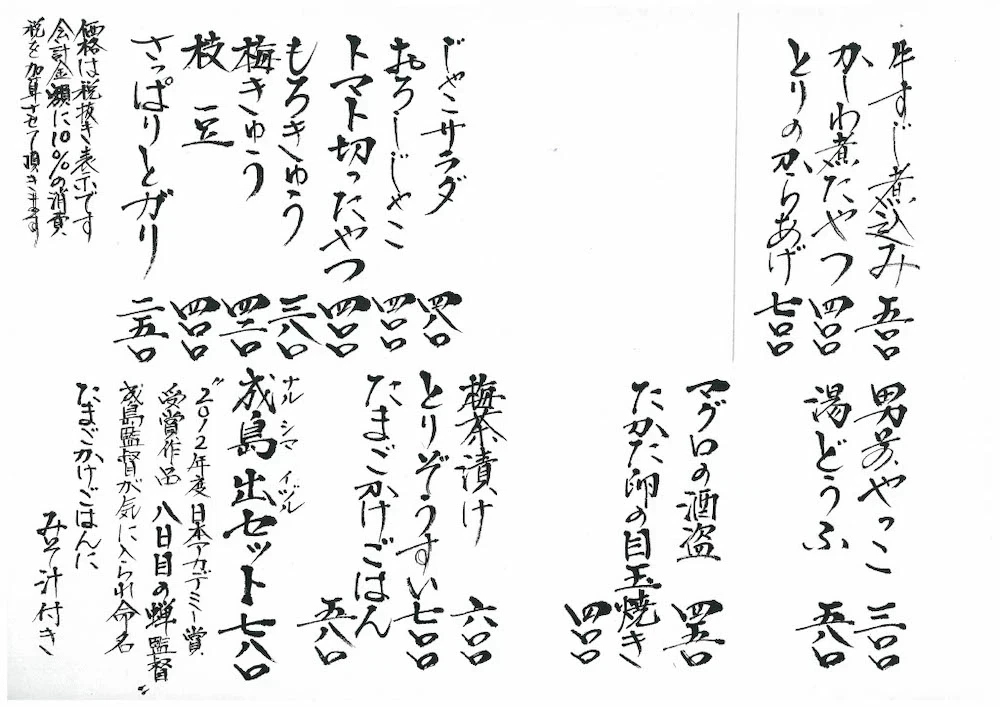 牛すじ煮込み 五〇〇
かしわ煮たやつ 四〇〇
とりのからあげ 七〇〇
じゃこサラダ 四八〇
おろしじゃこ 四〇〇
トマト切ったやつ 四〇〇
もろきゅう 三八〇
梅きゅう 四二〇
枝豆 四〇〇
さっぱりとガリ 二五〇
価格は税抜き表示です
会計金額に10%の消費
税を加算させて頂きます
男前やっこ 三〇〇
湯どうふ 五八〇
マグロの酒盗 四五〇
たかた卵の目玉焼き 四〇〇
梅茶漬け 六〇〇
とりぞうすい 七〇〇
たまごかけごはん 五八〇
ナルシマ イヅル
成島出セット 七八〇
"2012年度 日本アカデミー賞
受賞作品 八日目の蝉監督"
成島監督が気に入られ命名
たまごかけごはんに
みそ汁付き